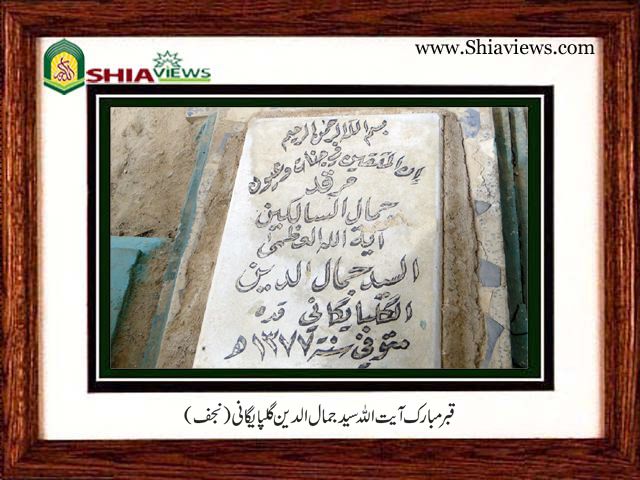 www.Shiaviews.com
SHIAVIEWS
بسم الله الرحمن الرحيم
ان المتقين في جنات وعيون
مرقد
جمال السالكين
آية الله العظمى
السيد جمال الدين
الگلپايگاني قده
متوفي سنة ١٣٧٧ ه
قبر مبارک آیت اللہ سید جمال الدین گلپایگانی (نجف)